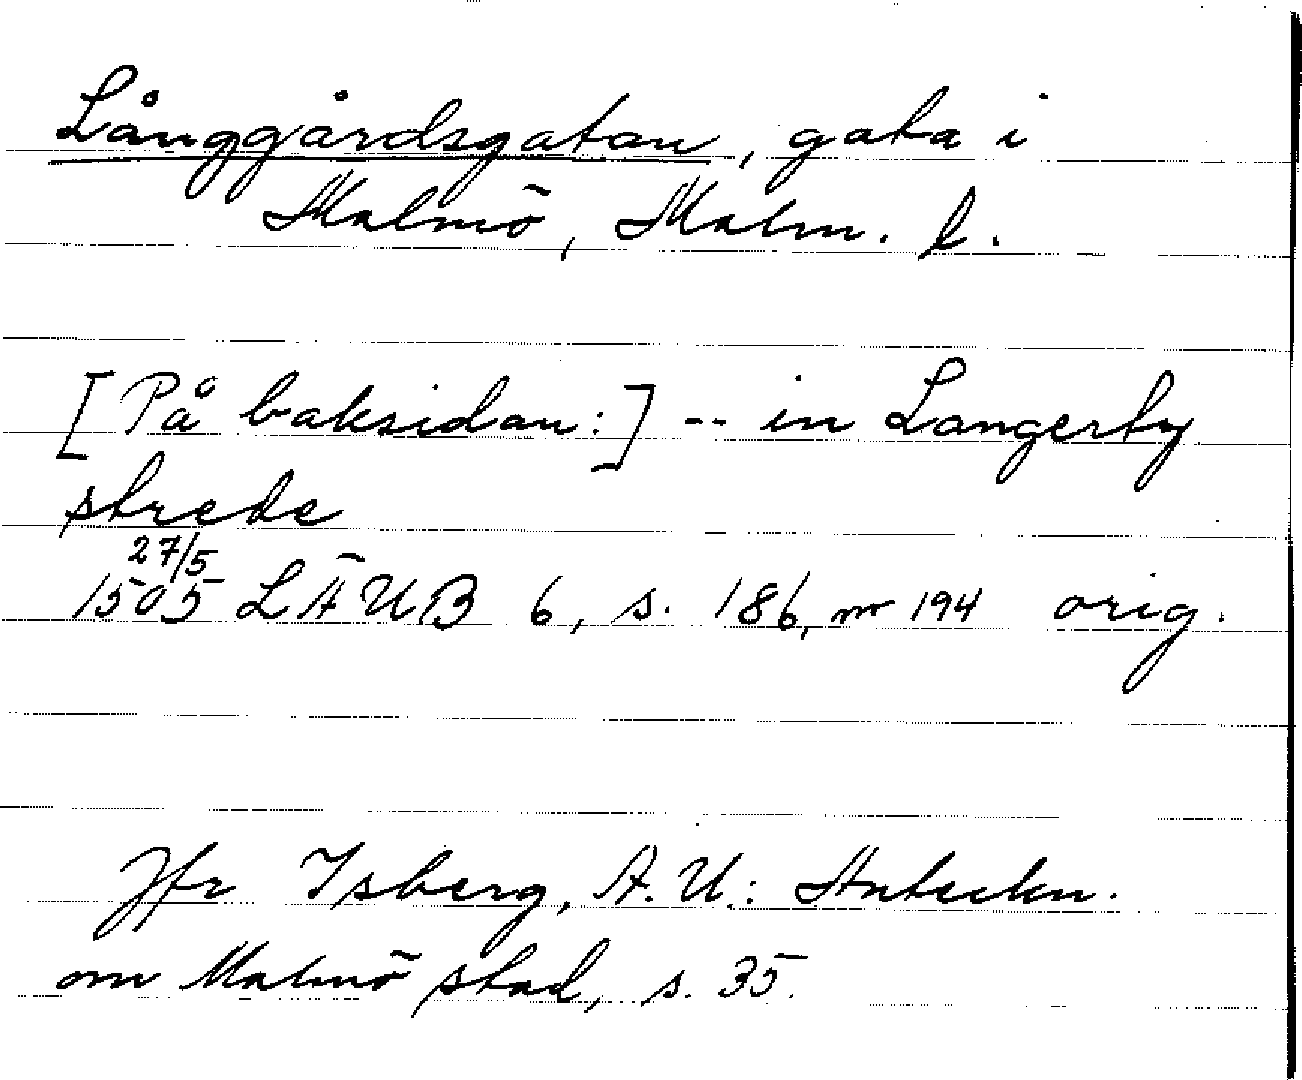 Långgårdsgatan, gata i
Malmö, Malm. l.
[På baksidan:] -- in Langerby
strede
27/5
1505 LÄUB 6, s. 186, nr 194 orig.
Jfr Isberg, A. U.: Anteckn.
om Malmö stad, s. 35.